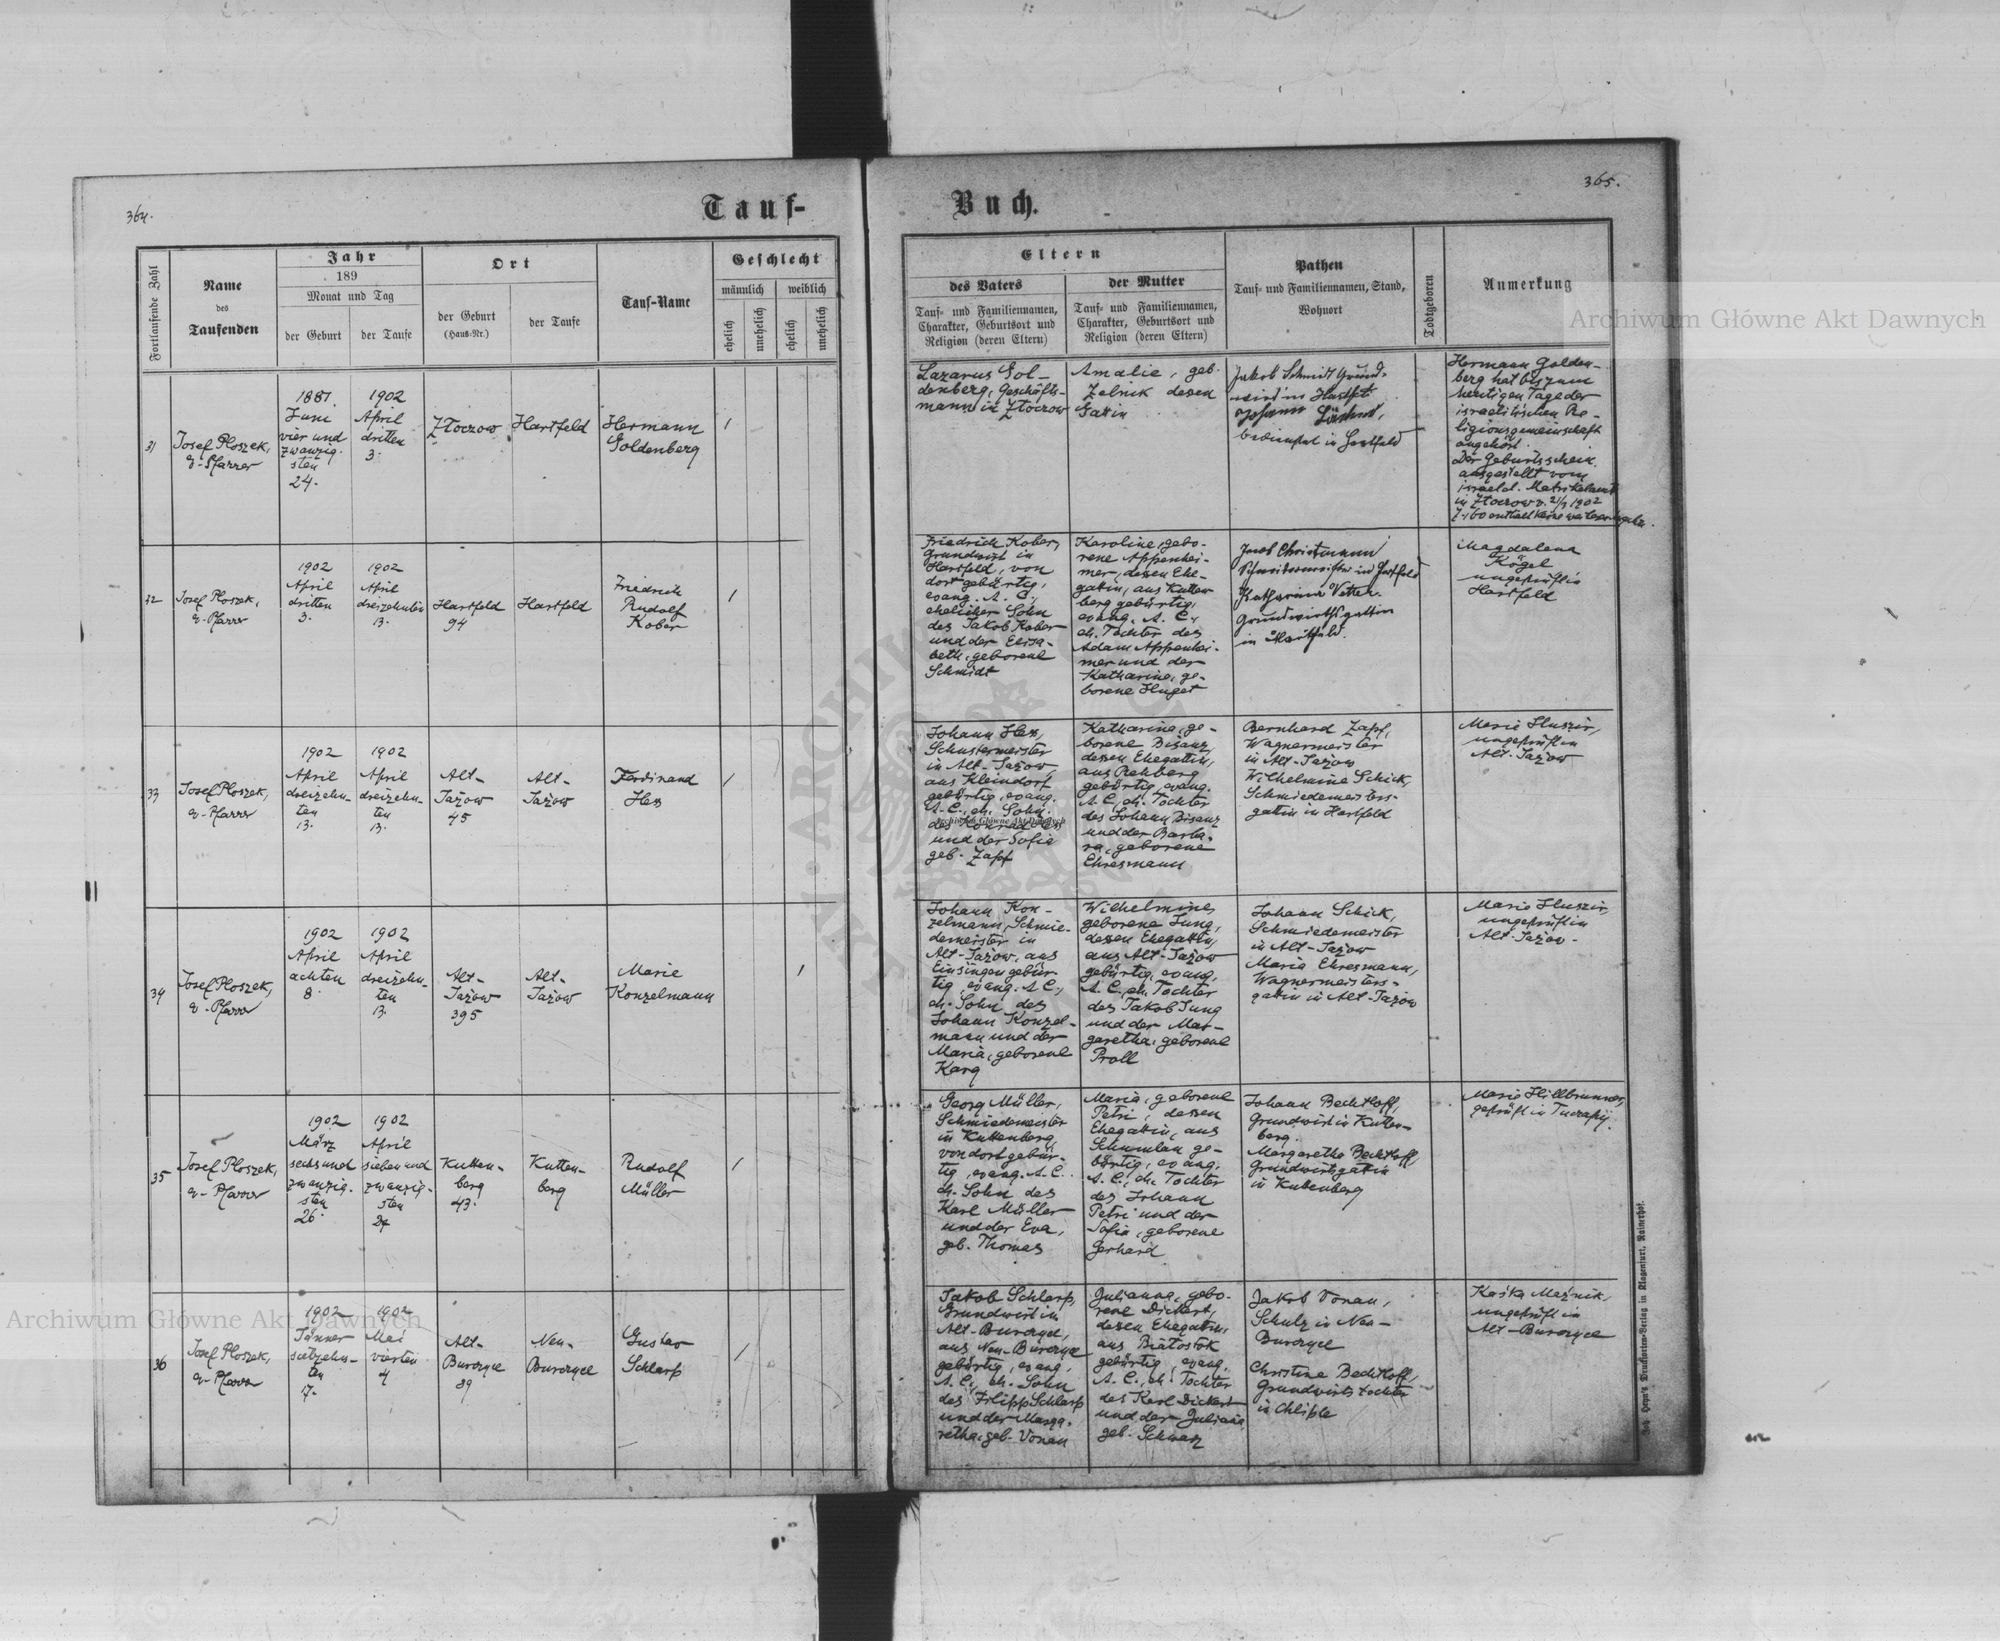 364.
Tauf-
Buch.
365.
Fortlaufende Zahl
Name
des
Taufenden
Jahr
189
Monat und Tag
der Geburt
der Taufe
Ort
der Geburt
(Haus-Nr.)
der Taufe
Tauf-Name
Geschlecht
männlich
weiblich
ehelich
unehelich
ehelich
unehelich
Eltern
des Vaters
Tauf- und Familiennamen,
Charakter, Geburtsort und
Religion (deren Eltern)
der Mutter
Tauf- und Familiennamen,
Charakter, Geburtsort und
Religion (deren Eltern)
Pathen
Tauf- und Familiennamen, Stand,
Wohnort
Todtgeboren
Anmerkung
31
Josef Ploszek,
ev. Pfarrer
1887.
Juni
vier und
zwanzig-
sten
24.
1902
April
dritten
3.
Złoczow
Hartfeld
Hermann
Goldenberg
1
Lazarus Gol-
denberg, Geschäfts-
mann in Złoczow
Amalie, geb.
Zelnik dessen
Gattin
Jakob Schmidt Grund-
wirt in Hartfeld
Johann
in Hartfeld
Hermann Golden-
berg hat bis zum
heutigen Tage der
israelitischen Re-
ligionsgemeinschaft
angehört.
Der Geburtsschein
ausgestellt vom
israel. Matrikelamt
in Złoczow
1902
enthält keine weiteren
32
Josef Ploszek,
ev. Pfarrer
1902
April
dritten
3.
1902
April
dreizehnten
13.
Hartfeld
94
Hartfeld
Friedrich
Rudolf
Kober
1
Friedrich Kober,
Grundwirt in
Hartfeld, von
dort gebürtig,
evang. A. C.,
ehelicher Sohn
des Jakob Kober
und der Elisa-
beth, geborene
Schmidt
Karoline, gebo-
rene Appenhei-
mer, dessen Ehe-
gattin, aus Kutten
berg gebürtig,
evang. A. C.,
eh. Tochter des
Adam Appenhei-
mer und der
Katharina, ge-
borene Huget
Jacob Christmann
Schneidermeister in Hartfeld
Katharina Vetter
Grundwirthsgattin
in Hartfeld.
Magdalena
Kögel
ungeprüft in
Hartfeld
33
Josef Ploszek,
ev. Pfarrer
1902
April
dreizehn-
ten
13.
1902
April
dreizehn-
ten
13.
Alt-
Jażow
45
Alt-
Jażow
Ferdinand
Hess
1
Johann Hess,
Schustermeister
in Alt-Jażow
aus Kleindorf
gebürtig, evang.
A. C., eh. Sohn
des Konrad Hess
und der Sofie
geb. Zapf
Katharina, ge-
borene Bisanz,
dessen Ehegattin,
aus Rehberg
gebürtig, evang.
A. C., eh. Tochter
des Johann Bisanz
und der Barba-
ra, geborene
Ehresmann
Bernhard Zapf,
Wagnermeister
in Alt-Jażow
Wilhelmine Schick,
Schmiedemeisters-
gattin in Hartfeld
Marie Huszir,
ungeprüft in
Alt-Jażow
34
Josef Ploszek,
ev. Pfarrer
1902
April
achten
8.
1902
April
dreizehn-
ten
13.
Alt-
Jażow
395
Alt-
Jażow
Marie
Konzelmann
1
Johann Kon-
zelmann, Schmie-
demeister in
Alt-Jażow, aus
Einsingen gebür-
tig, evang. A C.,
eh. Sohn des
Johann Konzel-
mann und der
Maria, geborene
Karg
Wilhelmine,
geborene Jung,
dessen Ehegattin,
aus Alt-Jażow
gebürtig, evang.
A. C., eh. Tochter
des Jakob Jung
und der Mar-
garetha, geborene
Proll
Johann Schick,
Schmiedemeister
in Alt-Jażow
Maria Ehresmann,
Wagnermeisters-
gattin in Alt-Jażow
Marie Huszir,
ungeprüft in
Alt-Jażow.
35
Josef Ploszek,
ev. Pfarrer
1902
März
sechs und
zwanzig-
sten
26.
1902
April
sieben und
zwanzig-
sten
27
Kutten-
berg
43.
Kutten-
berg
Rudolf
Müller
1
Georg Müller,
Schmiedemeister
in Kuttenberg,
von dort gebür-
tig, evang. A. C.
eh. Sohn des
Karl Müller
und der Eva,
geb. Thomas
Maria, geborene
Petri, dessen
Ehegattin, aus
Schumlau ge-
bürtig, evang.
A. C., eh. Tochter
des Johann
Petri und der
Sofia, geborene
Gerhard
Johann Bechtloff,
Grundwirt in Kutten-
berg.
Margaretha Bechtloff,
Grundwirtsgattin
in Kuttenberg
Marie Hillbrunner,
geprüft in
36
Josef Ploszek,
ev. Pfarrer
1902
Jänner
siebzehn-
ten
17.
1902
Mai
vierten
4
Alt-
Burczyce
89
Neu-
Burczyce
Gustav
Schlarp
1
Jakob Schlarp,
Grundwirt in
Alt-Burczyce,
aus Neu-Burczyce
gebürtig, evang.
A. C., eh. Sohn
des Filipp Schlarp
und der Marga-
retha, geb. Vonau
Julianna, gebo-
rene Dickert,
dessen Ehegattin,
aus Białostok
gebürtig, evang.
A. C., eh. Tochter
des Karl Dickert
und der Juliana
geb. Schwarz
Jakob Vonau,
Schulz in Neu-
Burczyce
Christina Bechtloff,
Grundwirtstochter
in Chliple
Kaśka Meźnik,
ungeprüft in
Alt-Burczyce
Joh. Heyn's Drucksorten-Verlag in Klagenfurt, Rainerhof.
Archiwum Główne Akt Dawnych
Archiwum Główne Akt Dawnych
Archiwum Główne Akt Dawnych